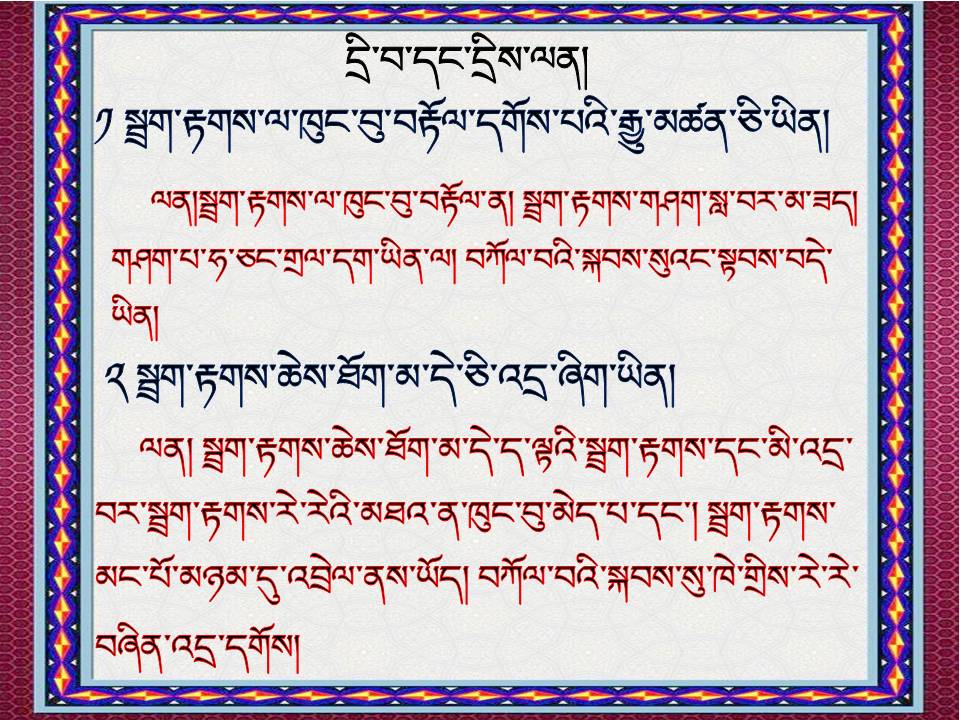 དྲི་བ་དང་དྲིས་ལན།
༡ སྦྲག་རྟགས་ལ་ཁུང་བུ་བརྟོལ་དགོས་པའི་རྒྱུ་མཚན་ཅི་ཡིན།
ལན།སྦྲག་རྟགས་ལ་ཁུང་བུ་བརྟོལ་ན། སྦྲག་རྟགས་གཤག་སླ་བར་མ་ཟད།
གཤག་པ་ཧ་ཅང་གྲལ་དག་ཡིན་ལ། བཀོལ་བའི་སྐབས་སུའང་སྟབས་བདེ་
ཡིན།
༢ སྦྲག་རྟགས་ཆེས་ཐོག་མ་དེ་ཅི་འདྲ་ཞིག་ཡིན།
ལན། སྦྲག་རྟགས་ཆེས་ཐོག་མ་དེ་ད་ལྟའི་སྦྲག་རྟགས་དང་མི་འདྲ་
བར་སྦྲག་རྟགས་རེ་རེའི་མཐའ་ན་ཁུང་བུ་མེད་པ་དང་། སྦྲག་རྟགས་
མང་པོ་མཉམ་དུ་འབྲེལ་ནས་ཡོད། བཀོལ་བའི་སྐབས་སུ་ཁེ་གྲིས་རེ་རེ་
བཞིན་འདྲ་དགོས།